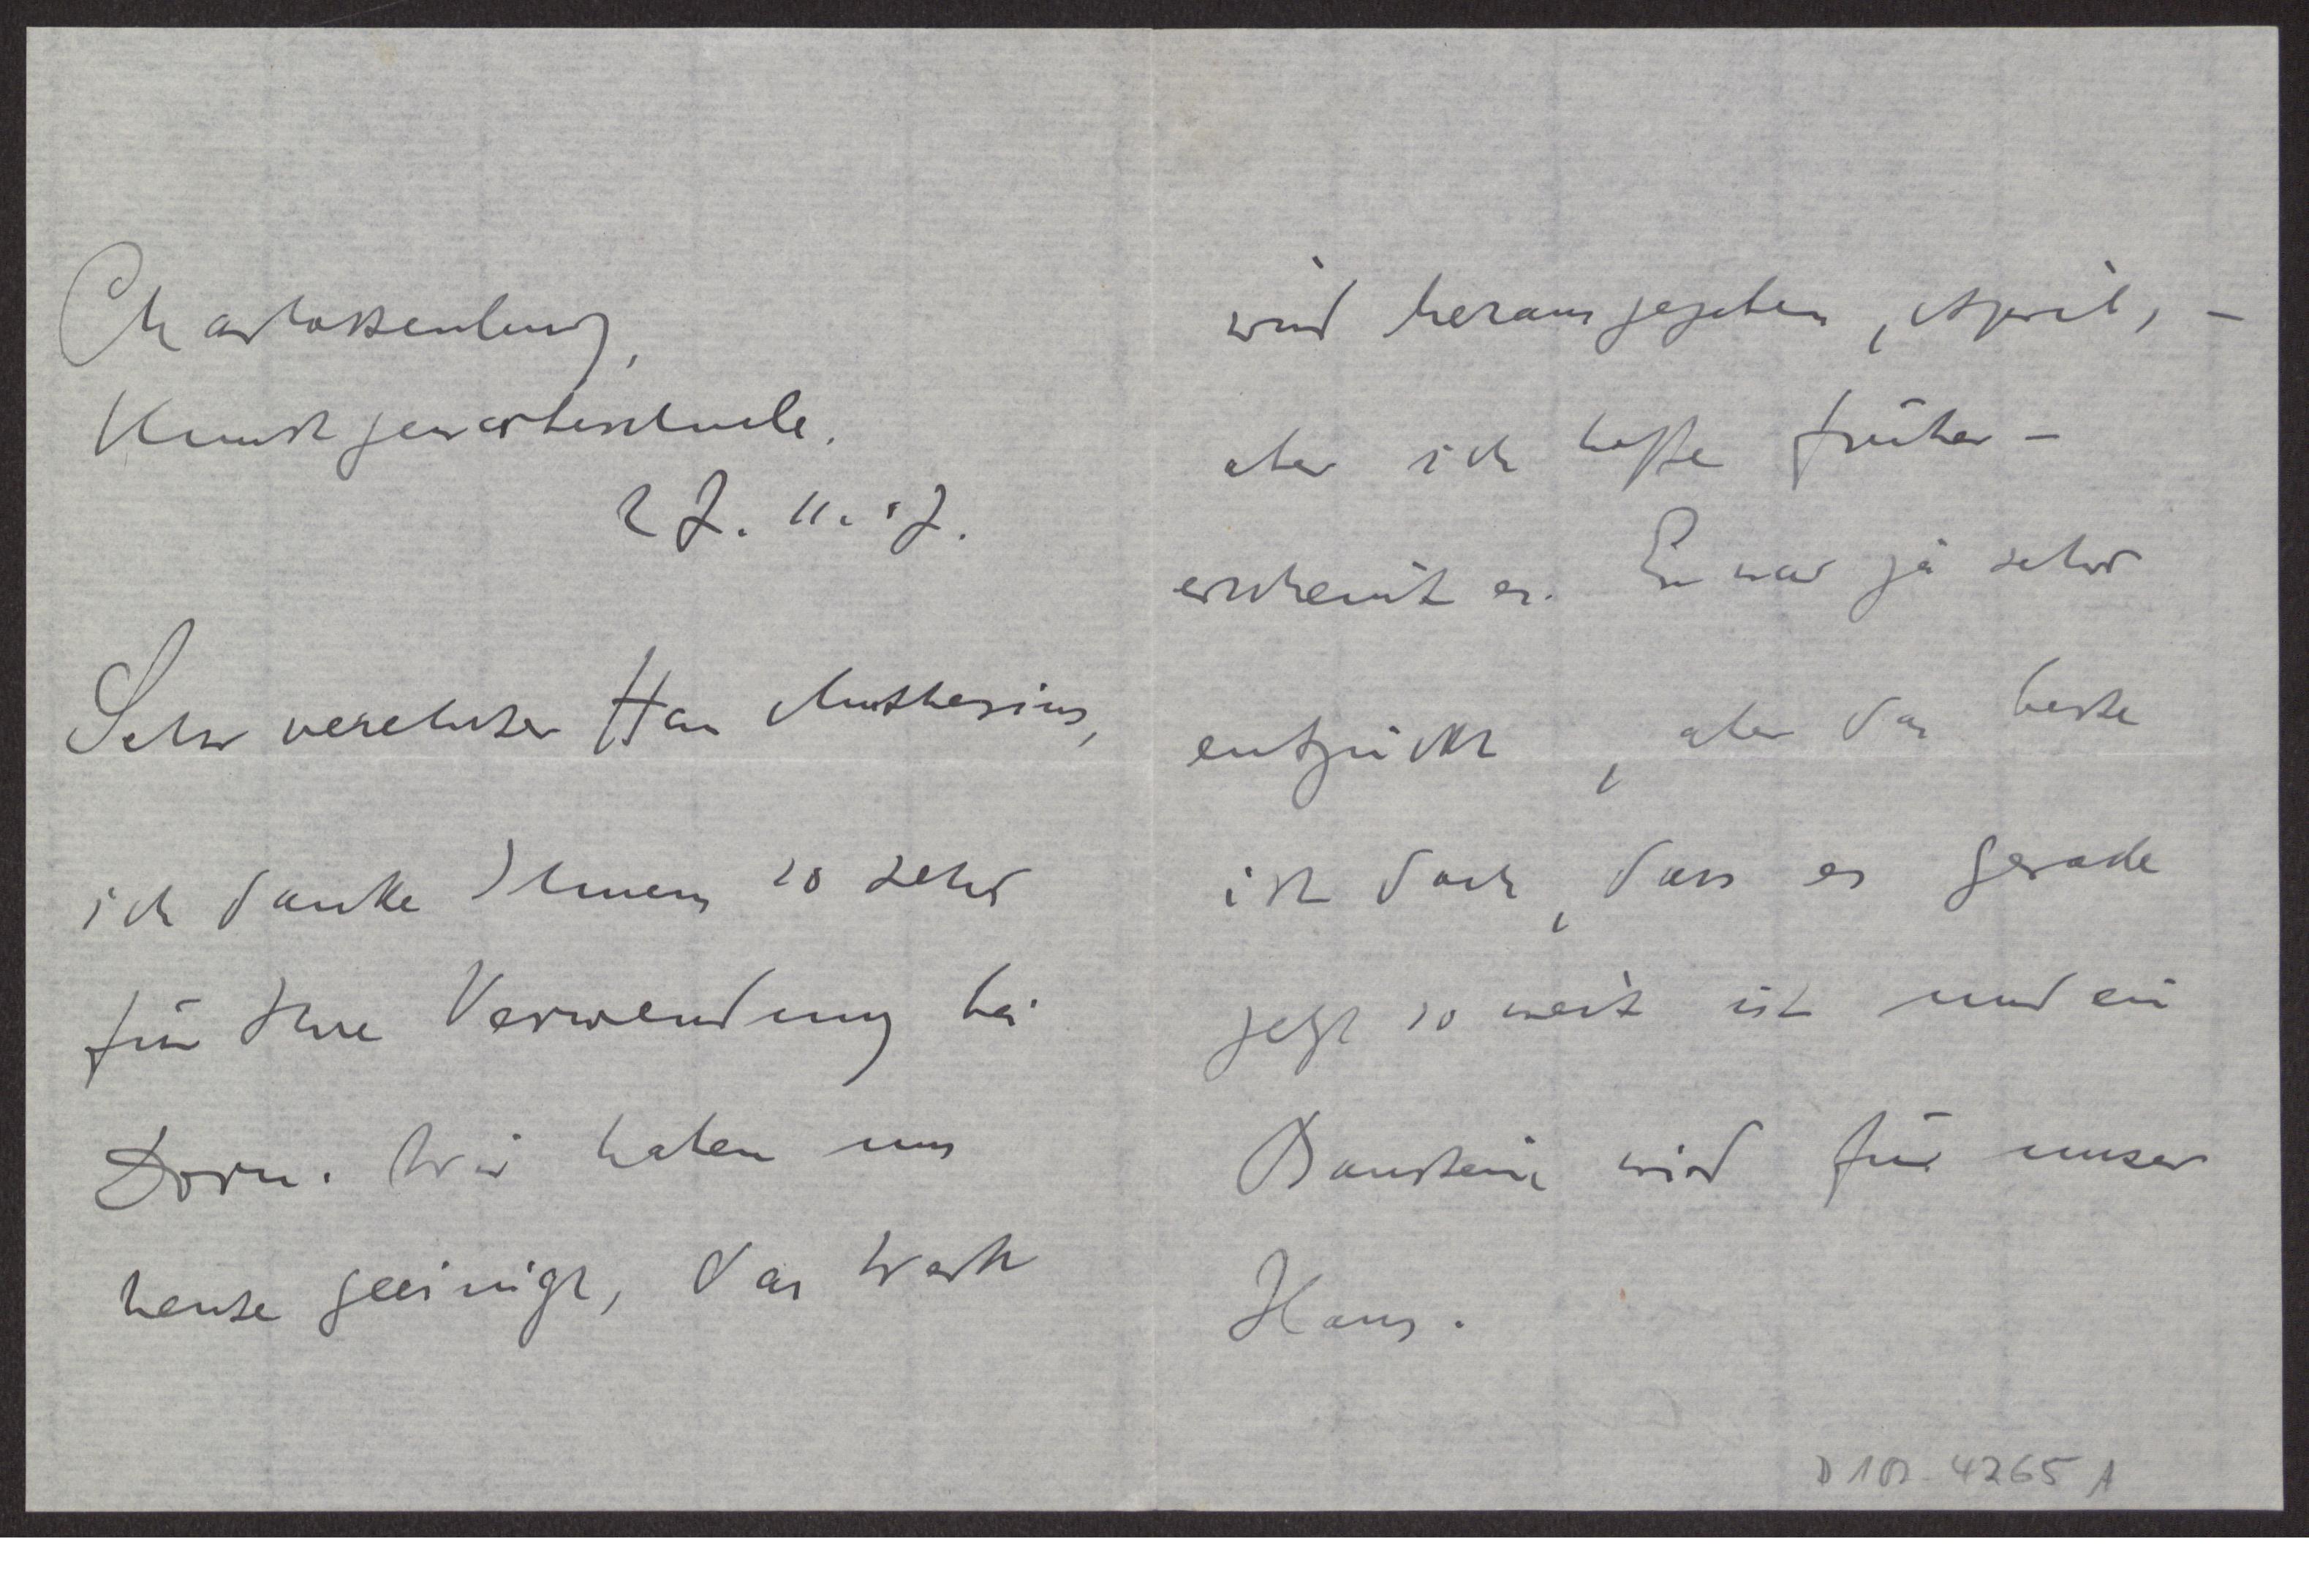 Charlottenburg,
Kunstgewerbeschule.
27. 11. 17.
Sehr verehrter Herr Muthesius,
ich danke Ihnen so sehr
für Ihre Verwendung bei
Dorn. Wir haben uns
heute geeinigt, das Werk
wird herausgegeben, April, -
aber ich hoffe früher -
erscheint es. Er war ja sehr
entzückt, aber das beste
ist doch, dass es gerade
jetzt so weit ist und ein
Baustein wird für unser
Haus.
D 102-4265 A